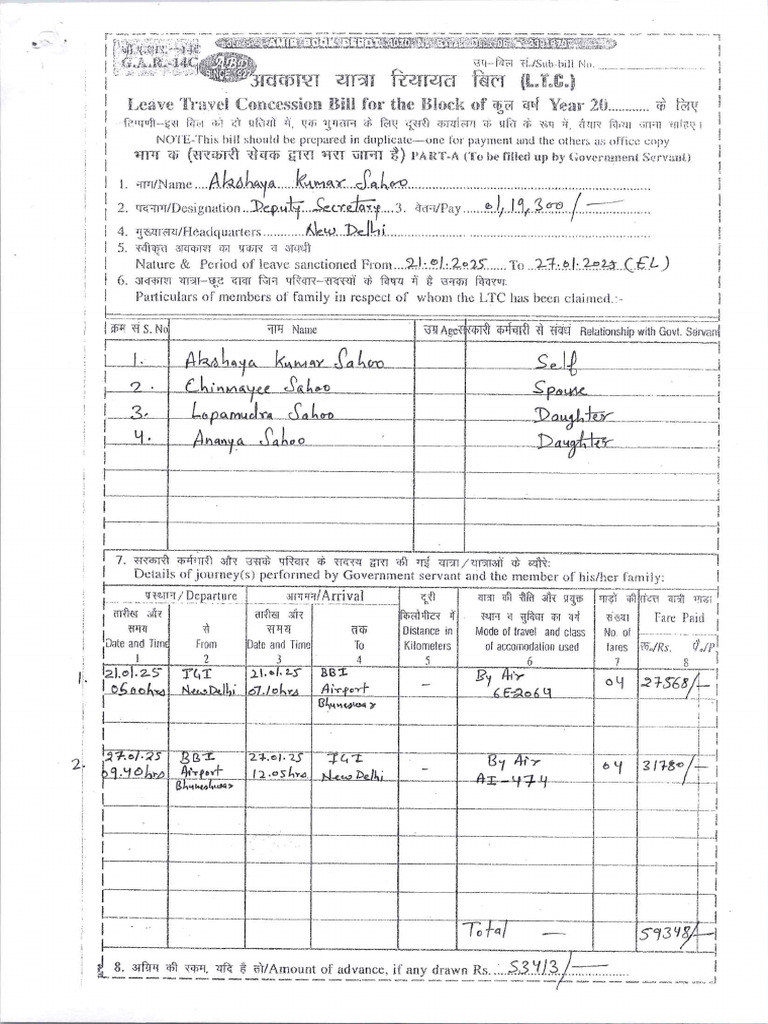 AMIR BOOK DEPOT
जी.ए.आर.-14C
G.A.R.-14C
ABD
SINCE 1927
उप-बिल सं./Sub-bill No.
अवकाश यात्रा रियायत बिल (L.T.C.)
Leave Travel Concession Bill for the Block of कुल वर्ष Year 20........... के लिए
टिप्पणी-इस बिल को दो प्रतियों में, एक भुगतान के लिए दूसरी कार्यालय के प्रति के रूप में, तैयार किया जाना चाहिए।
NOTE-This bill should be prepared in duplicate—one for payment and the others as office copy
भाग क (सरकारी सेवक द्वारा भरा जाना है) PART-A (To be filled up by Government Servant)
1. नाम/Name Akshaya Kumar Sahoo
2. पदनाम/Designation Deputy Secretary 3. वेतन/Pay 01,19,300/—
4. मुख्यालय/Headquarters New Delhi
5. स्वीकृत अवकाश का प्रकार व अवधी
Nature & Period of leave sanctioned From 21.01.2025 To 27.01.2025 (EL)
6. अवकाश यात्रा-छूट दावा जिन परिवार-सदस्यों के विषय में है उनका विवरण:
Particulars of members of family in respect of whom the LTC has been claimed.:-
क्रम सं S. No नाम Name उम्र Age सरकारी कर्मचारी से संबंध Relationship with Govt. Servant
1. Akshaya Kumar Sahoo Self
2. Chinmayee Sahoo Spouse
3. Lopamudra Sahoo Daughter
4. Ananya Sahoo Daughter
7. सरकारी कर्मचारी और उसके परिवार के सदस्य द्वारा की गई यात्रा/यात्राओं के ब्यौरे:
Details of journey(s) performed by Government servant and the member of his/her family:
प्रस्थान/Departure आगमन/Arrival दूरी यात्रा की रीति और प्रयुक्त गाड़ों की संदत्त यात्री भाड़ा
तारीख और तारीख और किलोमीटर में स्थान व सुविधा का वर्ग संख्या Fare Paid
समय से समय तक Distance in Mode of travel and class No. of
Date and Time From Date and Time To Kilometers of accomodation used fares रू./Rs. पै./P
1 2 3 4 5 6 7 8
1. 21.01.25 IGI 21.01.25 BBI - By Air 04 27568/—
0500hrs New Delhi 07.10hrs Airport 6E-2064
Bhuneswar
2. 27.01.25 BBI 27.01.25 IGI - By Air 04 31780/—
09.40hrs Airport 12.05hrs New Delhi AI-474
Bhuneshwar
Total — 59348/—
8. अग्रिम की रकम, यदि है तो/Amount of advance, if any drawn Rs. 53413/—